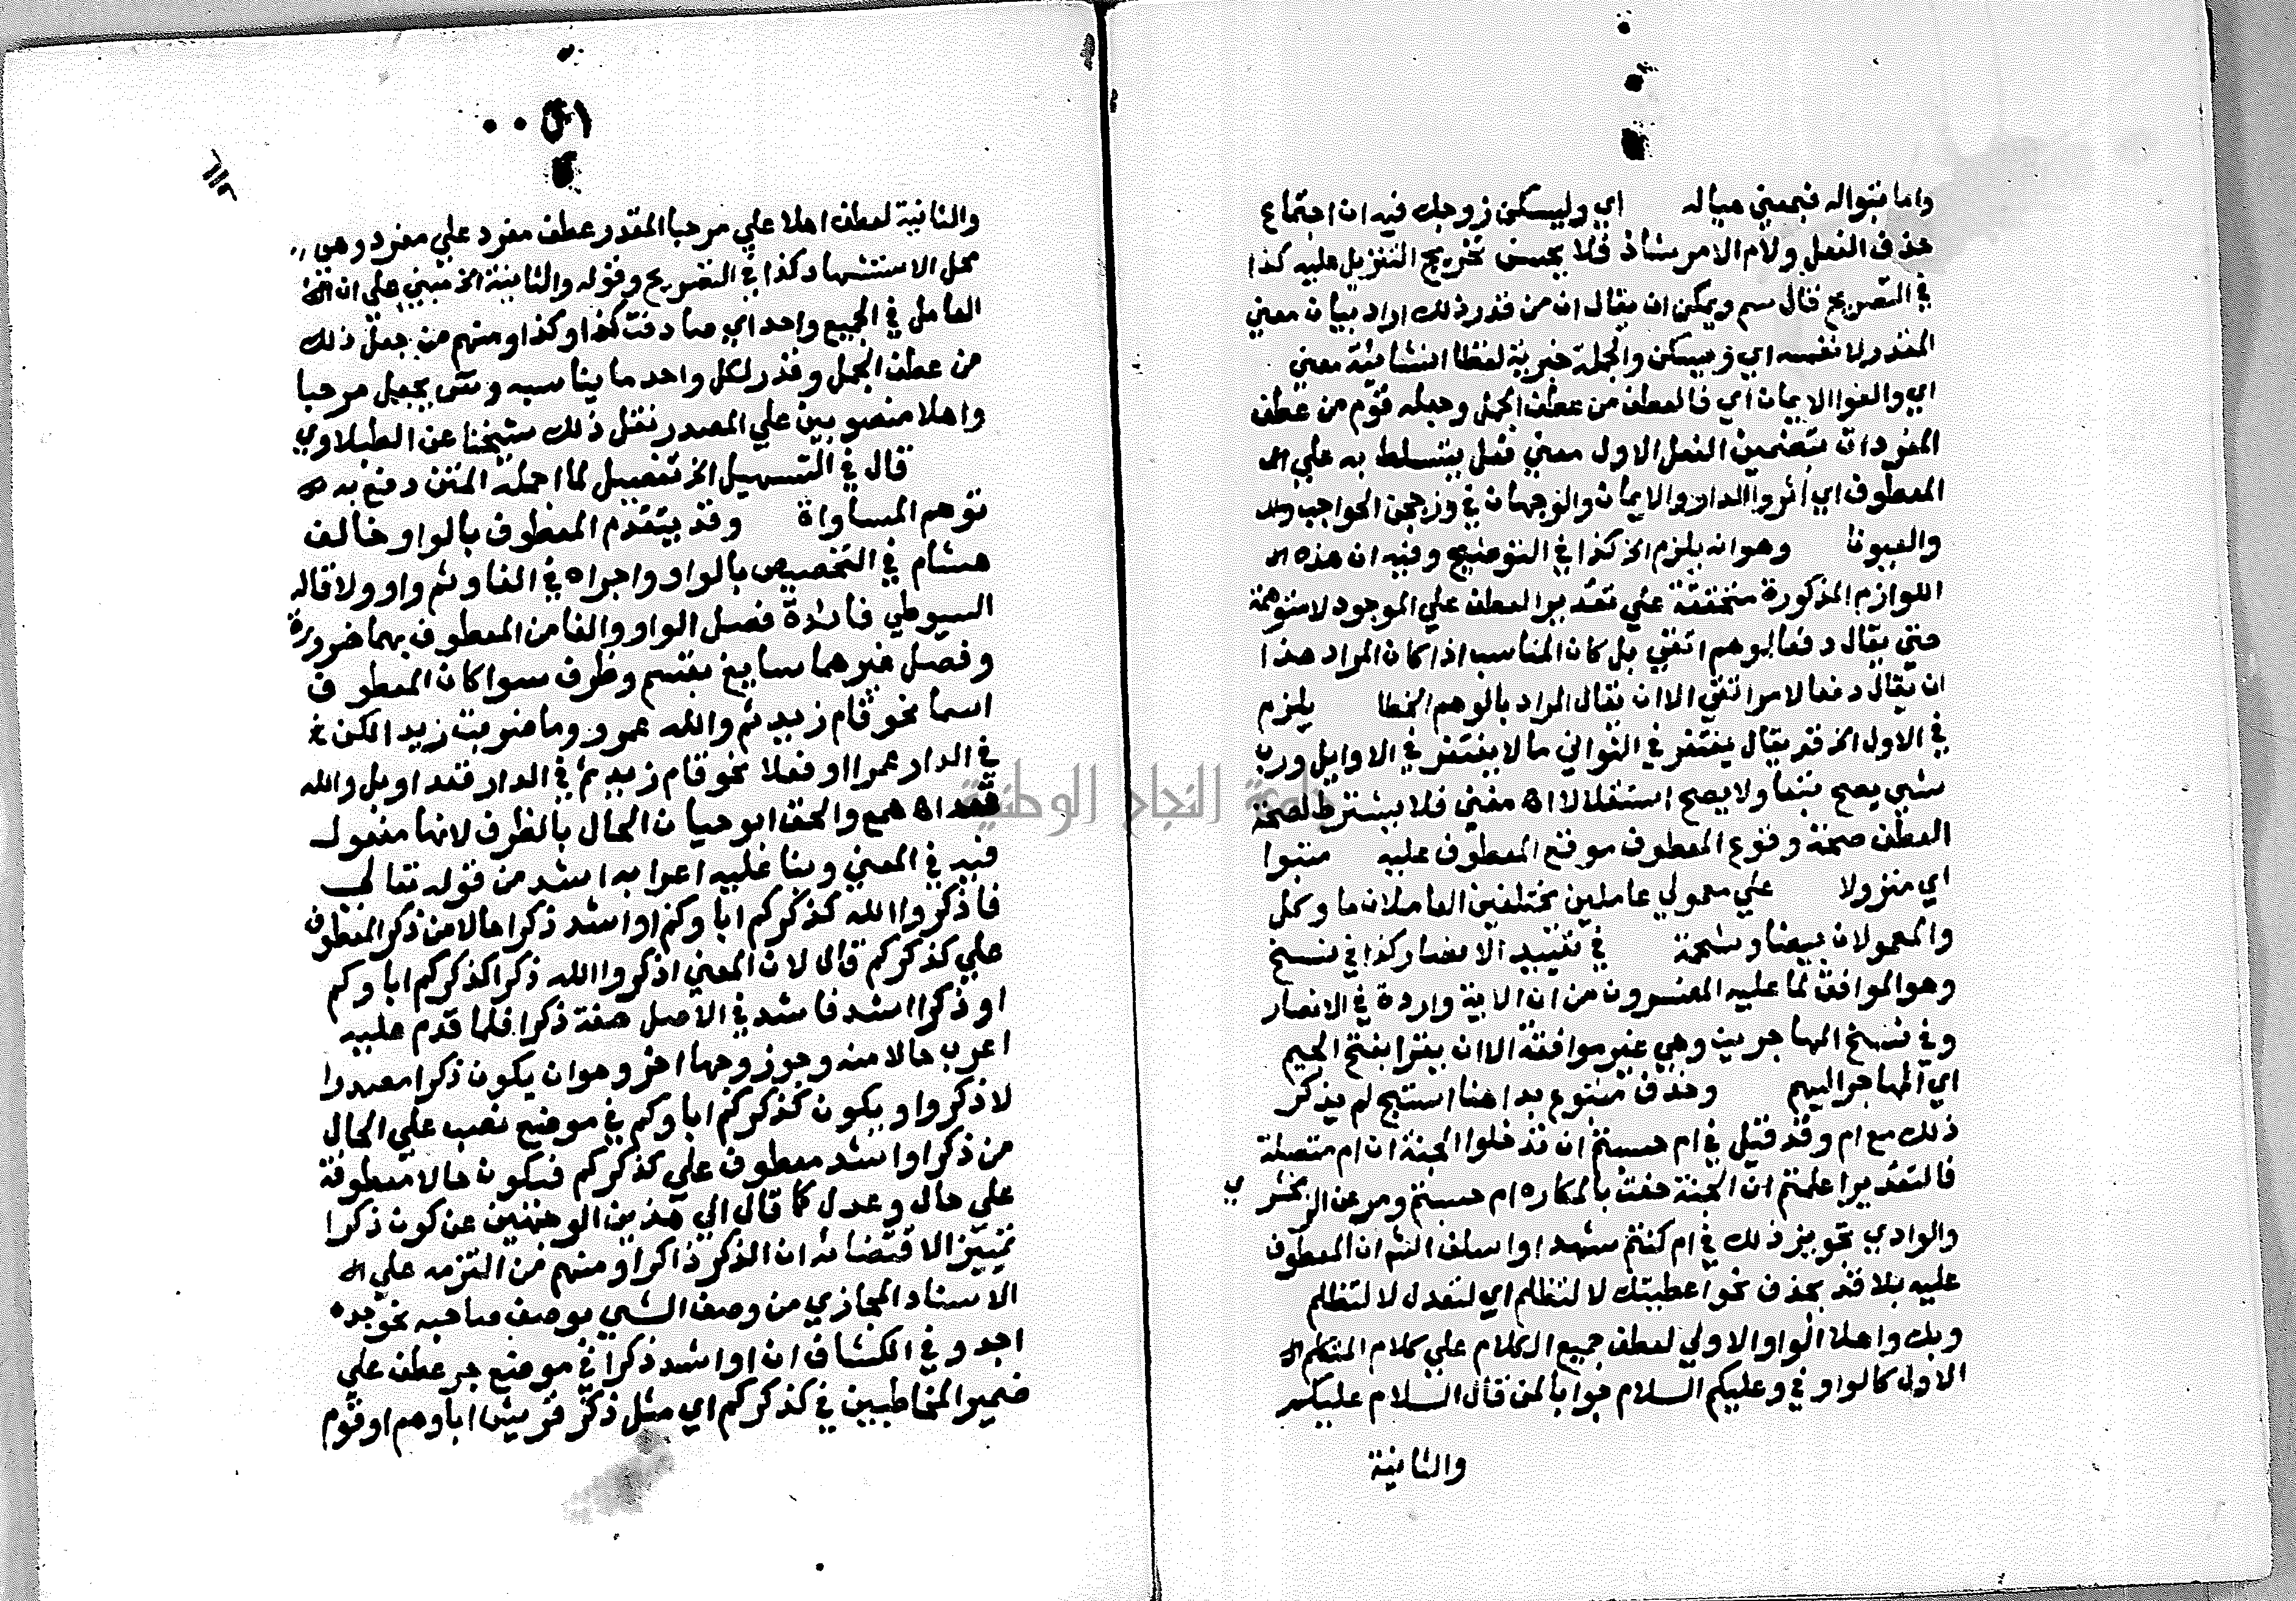 واما تبواله فبمعني هياله اي وليسكن زوجك فيه ان اجتماع
حذف الفعل ولام الامر شاذ فلا يحسن تخريج التنزيل عليه كذا
في التصريح قال سم ويمكن ان يقال ان من قدر ذلك اراد بيان معني
المقدر لا نفسه اي ويسكن والجملة خبرية لفظا انشائية معني
اي والفوا الايمان اي فالعطف من عطف الجمل وجعله قوم من عطف
المفردات بتضمين الفعل الاول معني فعل يتسلط به علي الم
المعطوف اي اثروا الدار والايمان والوجهان في وزججن الحواجب وال
والعيونا وهو انه يلزم الخ كذا في التوضيح وفيه ان هذه ال
اللوازم المذكورة متحققة علي تقدير العطف علي الموجود لا متوهمة
حتي يقال دفعا لوهم اتقي بل كان المناسب اذا كان المراد هذا
ان يقال دفعا لامر اتقي الا ان يقال المراد بالوهم الخطا يلزم
في الاول الخ قد يقال يغتفر في الثواني ما لا يغتفر في الاوايل ورب
شي يصح تبعا ولا يصح استقلالا اه مغني فلا يشترط لصحة
العطف صحة وقوع المعطوف موقع المعطوف عليه متبوا
اي منزولا علي معمولي عاملين مختلفين العاملان ما وكل
والمعمولان بيضا وشحمة في تقييد الانصار كذا في نسخ
وهو الموافق لما عليه المفسرون من ان الاية واردة في الانصار
وفي نسخ المهاجرين وهي غير موافقة الا ان يقرا بفتح الجيم
اي المهاجر اليهم وحذف متبوع بدا هنا استبح لم يذكر
ذلك مع ام وقد قيل في ام حسبتم ان تدخلوا الجنة ان ام متصلة
فالتقدير اعلمتم ان الجنة حفت بالمكاره ام حسبتم ومر عن الزمخشري
والوادي تجويز ذلك في ام كنتم شهدا واسلف الشم ان المعطوف
عليه بلا قد يحذف نحو اعطيتك لا لتظلم اي لتعدل لا لتظلم
وبك واهلا الواو الاولي لعطف جميع الكلام علي كلام المتكلم ال
الاول كالواو في وعليكم السلام جوابا لمن قال السلام عليكم
والثانية
والثانية لعطف اهلا علي مرحبا المقدر عطف مفرد علي مفرد وهي
محل الاستشهاد كذا في التصريح وقوله والثانية الخ مبني علي ان
العامل في الجميع واحد اي صادفت كذا وكذا ومنهم من جعل ذلك
من عطف الجمل وقدر لكل واحد ما يناسبه وسي يجعل مرحبا
واهلا منصوبين علي المصدر نقل ذلك شيخنا عن الطبلاوي
قال في التسهيل الخ تفصيل لما اجمله المتن دفع به
توهم المساواة وقد يتقدم المعطوف بالواو خالف
هشام في التخصيص بالواو واجراه في الفا وثم واو ولا قاله
السيوطي فائدة فصل الواو والفا من المعطوف بهما ضرورة
وفصل غيرهما سايغ بقسم وظرف سوا كان المعطوف
اسما نحو قام زيد ثم والله عمرو وما ضربت زيدا لكن
في الدار عمرا او فعلا نحو قام زيد ثم في الدار قعد او بل والله
قعد اه همع والحق ابو حيان الحال بالظرف لانها مفعول
فيه في المعني وبنا عليه اعرابه اشد من قوله تعالي
فاذكروا الله كذكركم اباوكم او اشد ذكرا حالا من ذكر المعطوف
علي كذكركم قال لان المعني اذكروا الله ذكرا كذكركم اباوكم
او ذكرا اشد فاشد في الاصل صفة ذكرا فلما قدم عليه
اعرب حالا منه وجوز وجها اخر وهو ان يكون ذكرا مصدرا
لاذكروا ويكون كذكركم اباوكم في موضع نصب علي الحال
من ذكرا واشد معطوف علي كذكركم فيكون حالا معطوفة
علي حال وعدل كما قال الي هذين الوجهين عن كون ذكرا
تمييزا لاقتضائه ان الذكر ذاكرا ومنهم من التزمه علي ال
الاسناد المجازي من وصف الشي بوصف صاحبه نحو جده
اجد وفي الكشاف ان او اشد ذكرا في موضع جر عطف علي
ضمير المخاطبين في كذكركم اي مثل ذكر قريش اباوهم او قوم
جامعة النجاح الوطنية